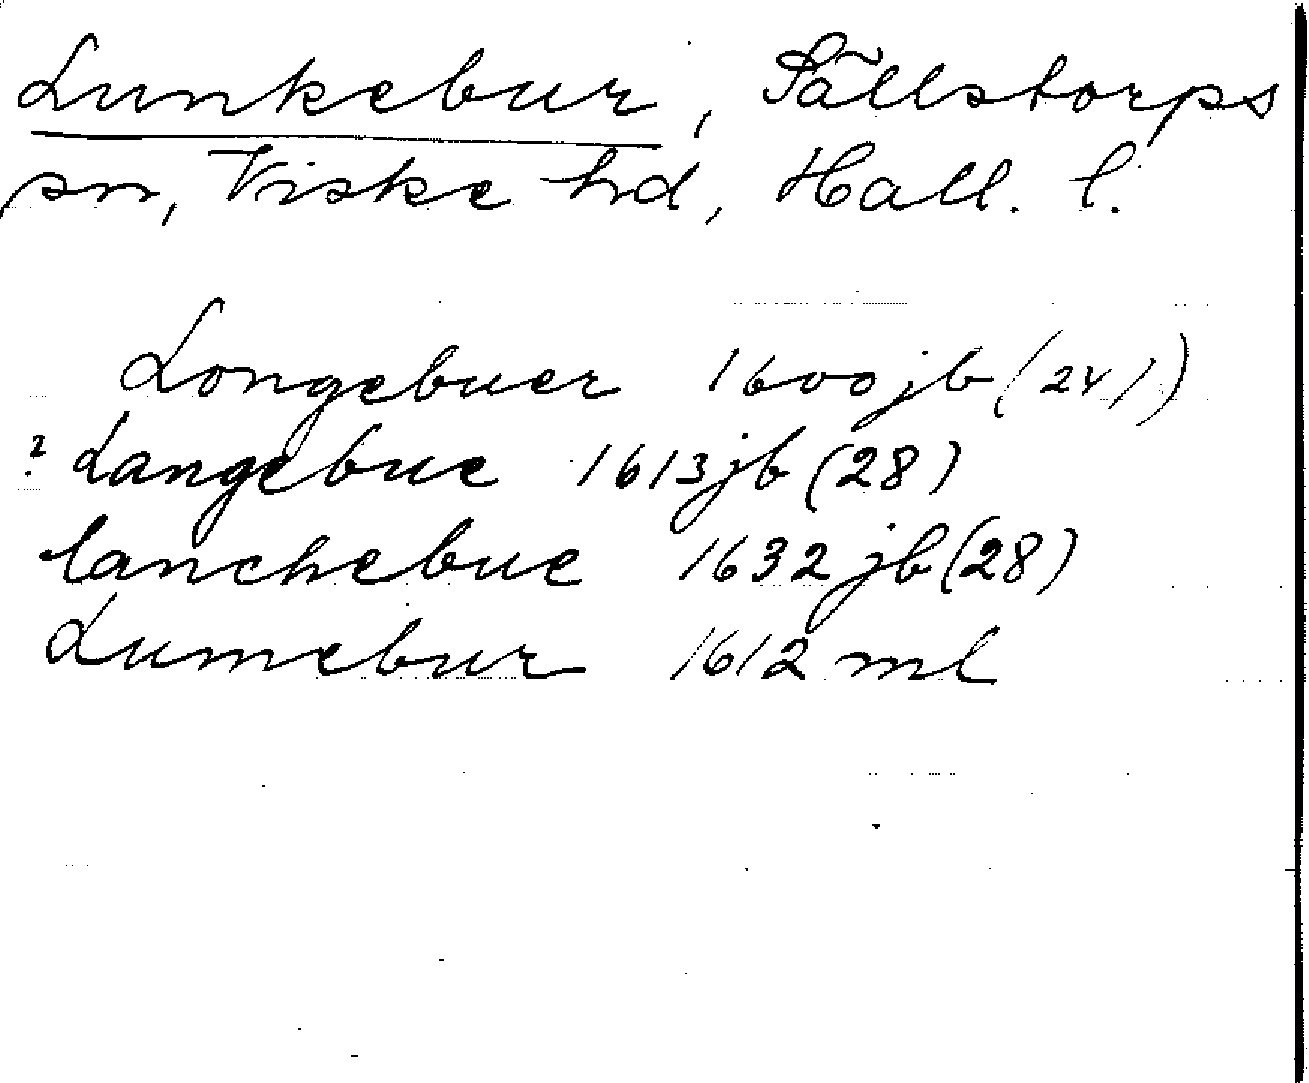 Lunkebur, Sällstorps
sn, Viske hd, Hall. l.
Longebuer 1600 jb (241)
? Langebue 1613 jb (28)
lanchebue 1632 jb (28)
Lumebur 1612 ml